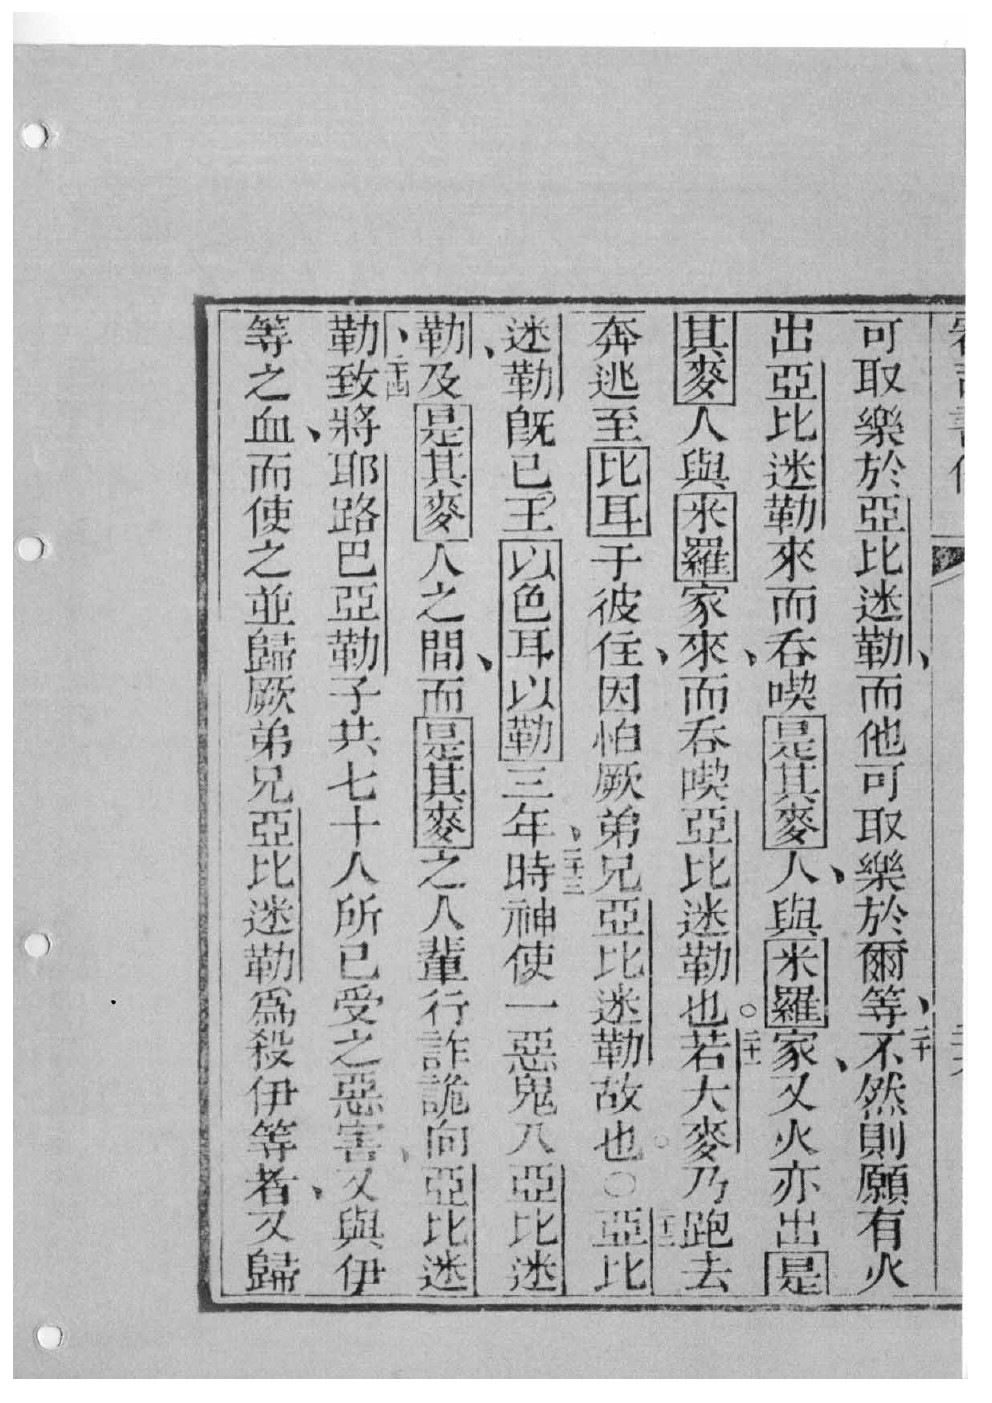 可取樂於亞比迷勒、而他可取樂於爾等、二十不然則願有火
出亞比迷勒來而吞喫是其麥人、與米羅家、又火亦出是
其麥人與米羅家來、而吞喫亞比迷勒也。二十一若大麥乃跑去
奔逃至比耳于彼住、因怕厥弟兄亞比迷勒故也。○二十二亞比
迷勒既已王以色耳以勒三年、二十三時神使一惡鬼入亞比迷
勒、及是其麥人之間、而是其麥之人輩行詐詭向亞比迷
勒、二十四致將耶路巴亞勒子共七十人所已受之惡害、又與伊
等之血、而使之並歸厥弟兄亞比迷勒為殺伊等者、又歸